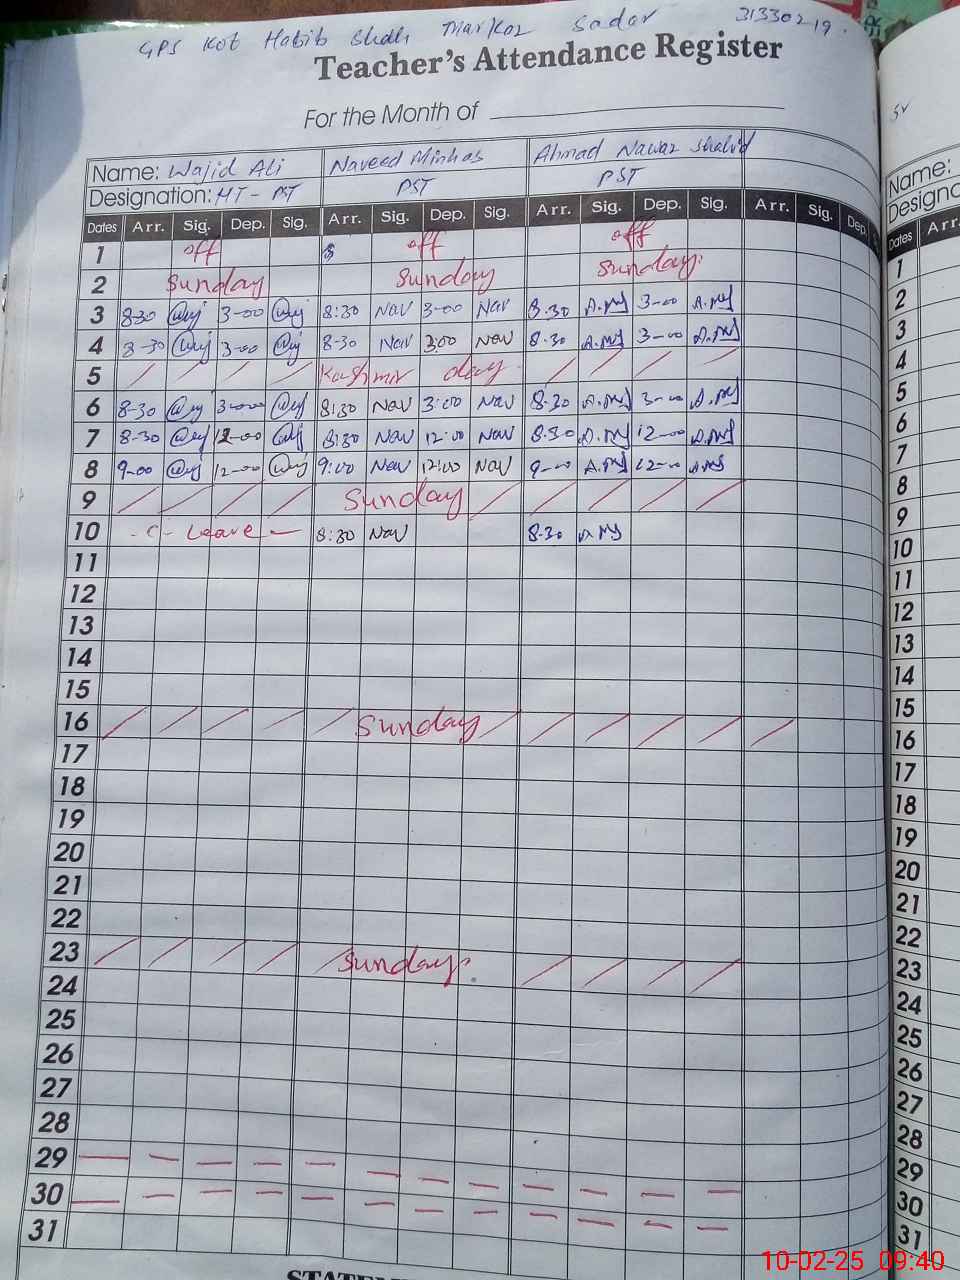 GPS Kot Habib Shah Markaz Sadar 31330219.
Teacher's Attendance Register
For the Month of
Name: Wajid Ali Naveed Minhas Ahmad Nawaz Shahid
Designation: HT - PST PST PST
Dates Arr. Sig. Dep. Sig. Arr. Sig. Dep. Sig. Arr. Sig. Dep. Sig. Arr. Sig. Dep
1 off off off
2 Sunday Sunday Sunday
3 830 3-00 8:30 Nav 3-00 Nav 8.30 3-00
4 8-30 3-00 8-30 Nav 3:00 Nav 8-30 3-00
5 Kashmir day
6 8-30 3-00 8:30 Nav 3:00 Nav 8-30 3-00
7 8-30 12-00 8:30 Nav 12:00 Nav 8-30 12-00
8 9-00 12-00 9:00 Nav 12:00 Nav 9-00 12-00
9 Sunday
10 - C - Leave - 8:30 Nav 8-30
11
12
13
14
15
16 Sunday
17
18
19
20
21
22
23 Sunday
24
25
26
27
28
29
30
31
Name:
Designa
Dates Arr.
1
2
3
4
5
6
7
8
9
10
11
12
13
14
15
16
17
18
19
20
21
22
23
24
25
26
27
28
29
30
31
10-02-25 09:40